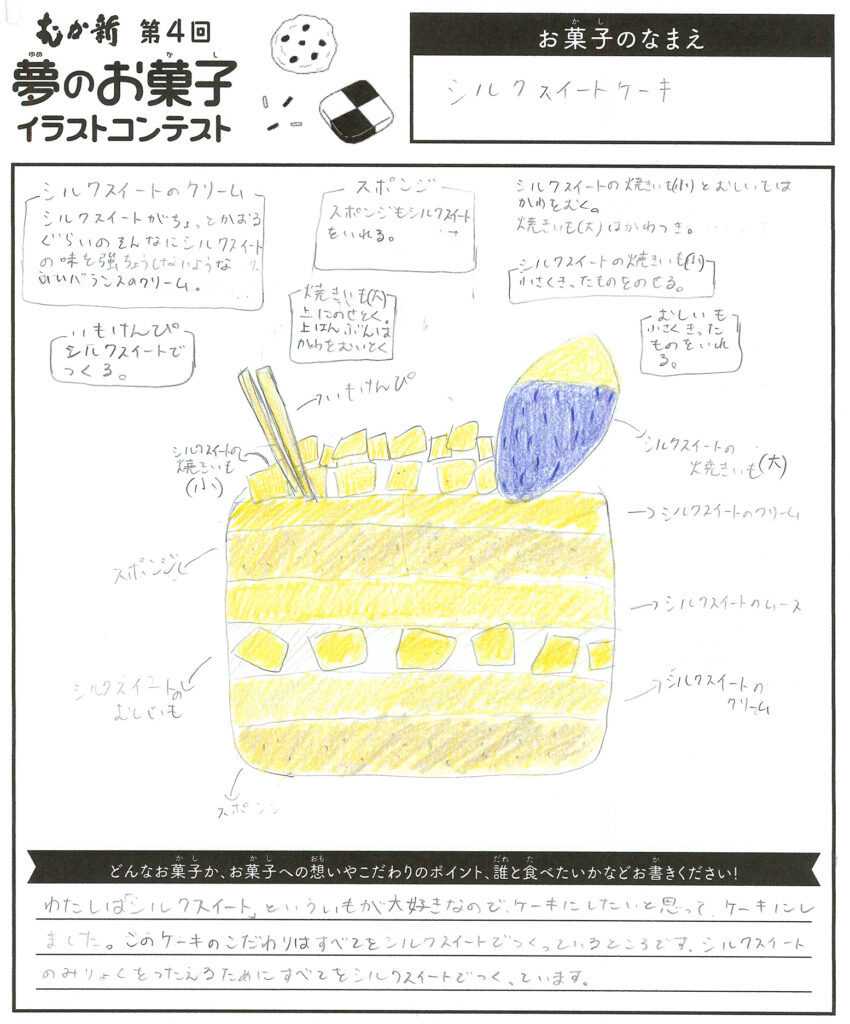 むか新 第4回
夢のお菓子
イラストコンテスト
お菓子のなまえ
シルクスイートケーキ
シルクスイートのクリーム
シルクスイートがちょっとかおる
ぐらいのそんなにシルクスイート
の味を強ちょうしないような
バランスのクリーム。
スポンジ
スポンジもシルクスイート
をいれる。
シルクスイートの焼きいも(小)とむしいもは
かわをむく。
焼きいも(大)はかわつき。
シルクスイートの焼きいも(小)
小さくきったものをのせる。
焼きいも(大)
上にのせとく。
上はんぶんは
かわをむいとく
むしいも
小さくきった
ものをいれ
る。
いもけんぴ
シルクスイートで
つくる。
いもけんぴ
シルクスイートの
焼きいも
(小)
シルクスイートの
焼きいも(大)
シルクスイートのクリーム
スポンジ
シルクスイートのムース
シルクスイートの
むしいも
シルクスイートの
クリーム
スポンジ
どんなお菓子か、お菓子への想いやこだわりのポイント、誰と食べたいかなどお書きください!
わたしは「シルクスイート」といういもが大好きなので、ケーキにしたいと思って、ケーキにし
ました。このケーキのこだわりはすべてをシルクスイートでつくっているところです。シルクスイート
のみりょくをつたえるためにすべてをシルクスイートでつくっています。